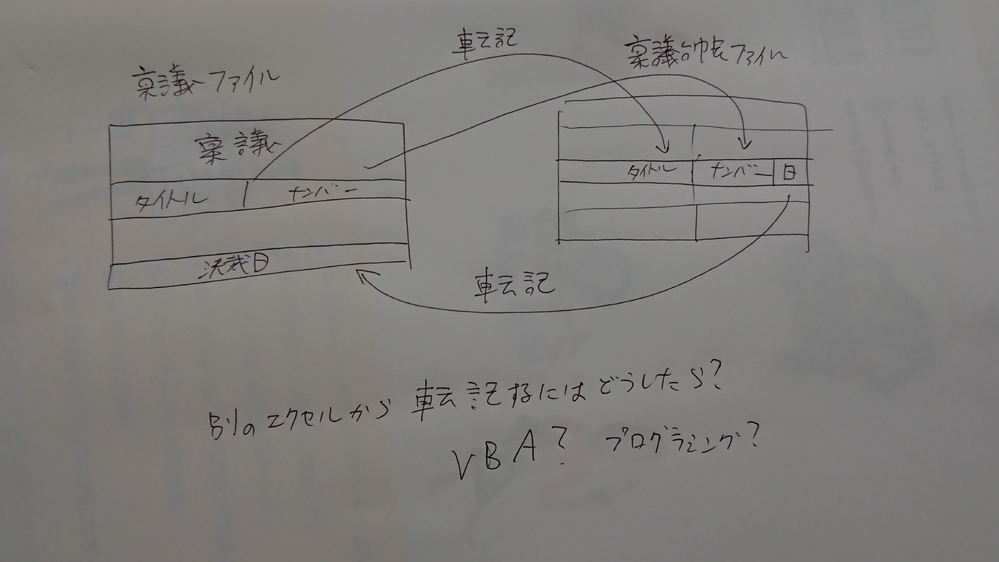 転記
稟議ファイル
稟議台帳ファイル
稟議
タイトル
ナンバー
決裁日
タイトル
ナンバー
日
転記
別のエクセルから転記するにはどうしたら?
VBA? プログラミング?